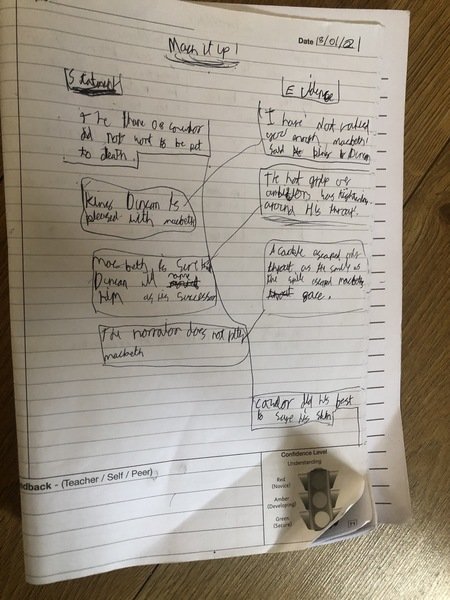 Date 18/01/21
Mach it up!
Statement
Evidence
The thane of cawdor
did not want to be put
to death.
I have not valued
you enough, macbeth'
said
Duncan
Kings Duncan is
pleased with macbeth
The hot grip of
ambition has tightened
around his throat.
macbeth is sure
Duncan will name
him as his successor
A cackle escaped
throat as the
the smile escaped macbeths
gace.
The narrator does not
macbeth
cawdor did his best
to save his skin
edback - (Teacher / Self / Peer)
Confidence Level
Understanding
Red
(Novice)
Amber
(Developing)
Green
(Secure)